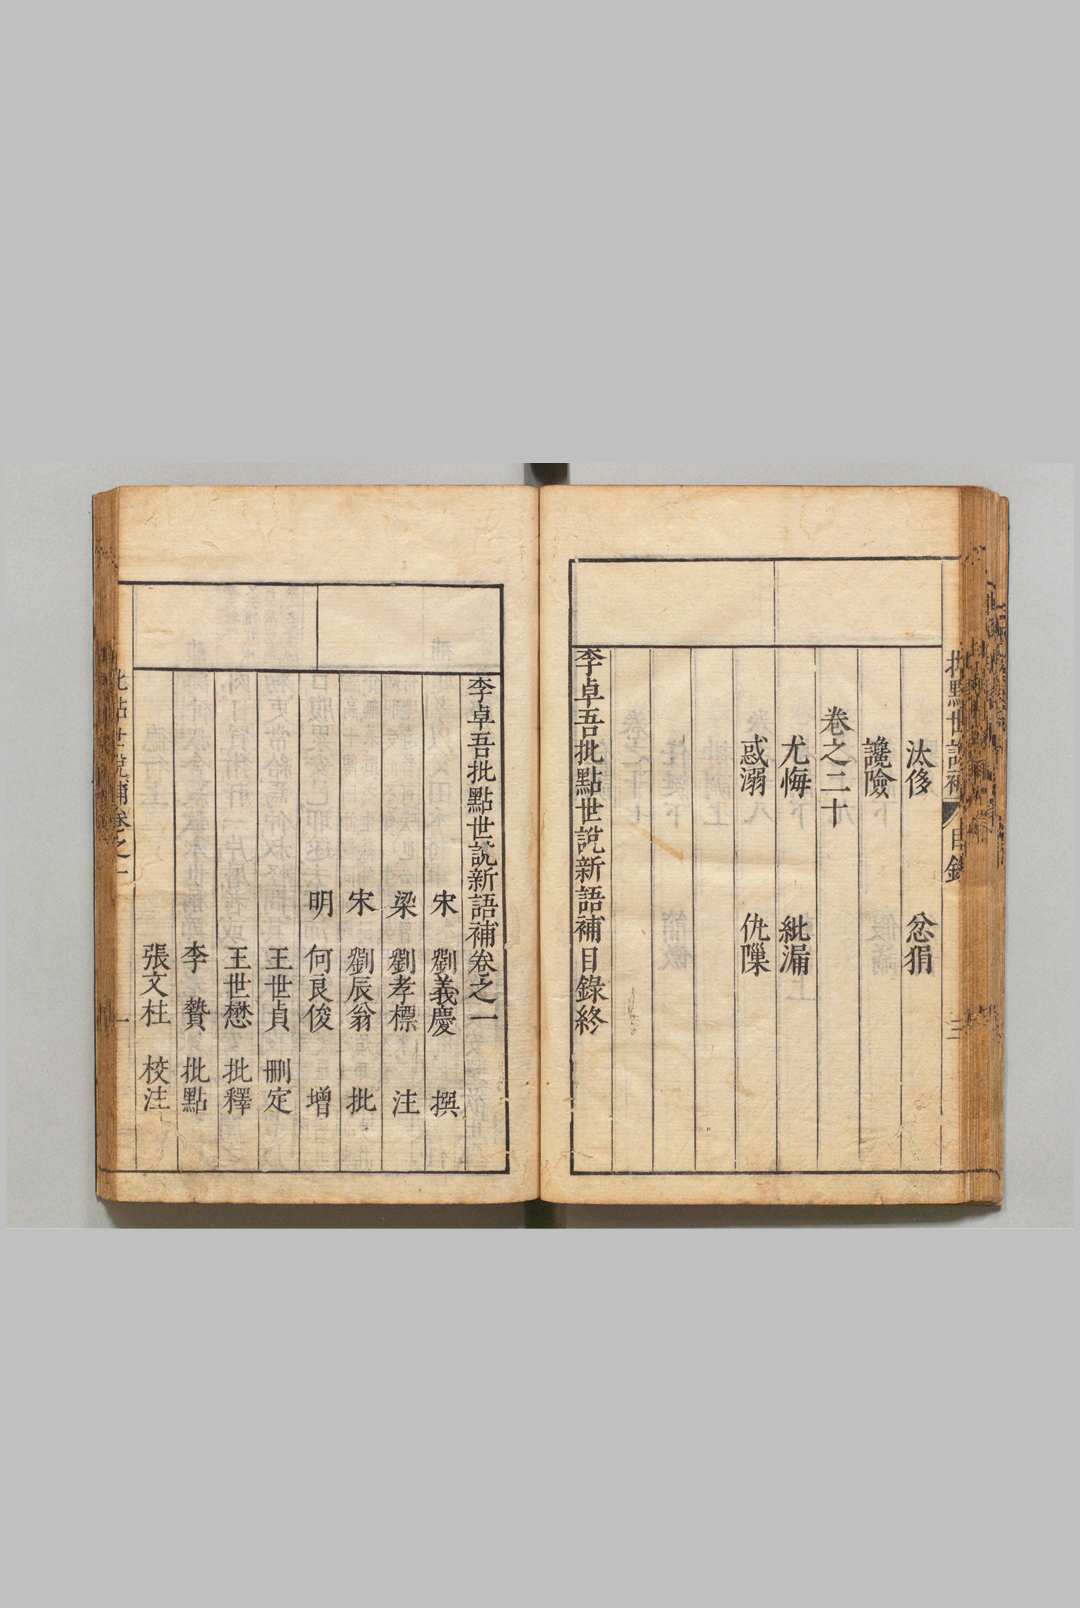 批點世說補 目錄 三
汰侈 忿狷
讒險
卷之二十
尤悔 紕漏
惑溺 仇隟
李卓吾批點世說新語補目錄終
李卓吾批點世說新語補卷之一
宋 劉義慶 撰
梁 劉孝標 注
宋 劉辰翁 批
明 何良俊 增
王世貞 刪定
王世懋 批釋
李贄 批點
張文柱 校注
批點世說補卷之一 一